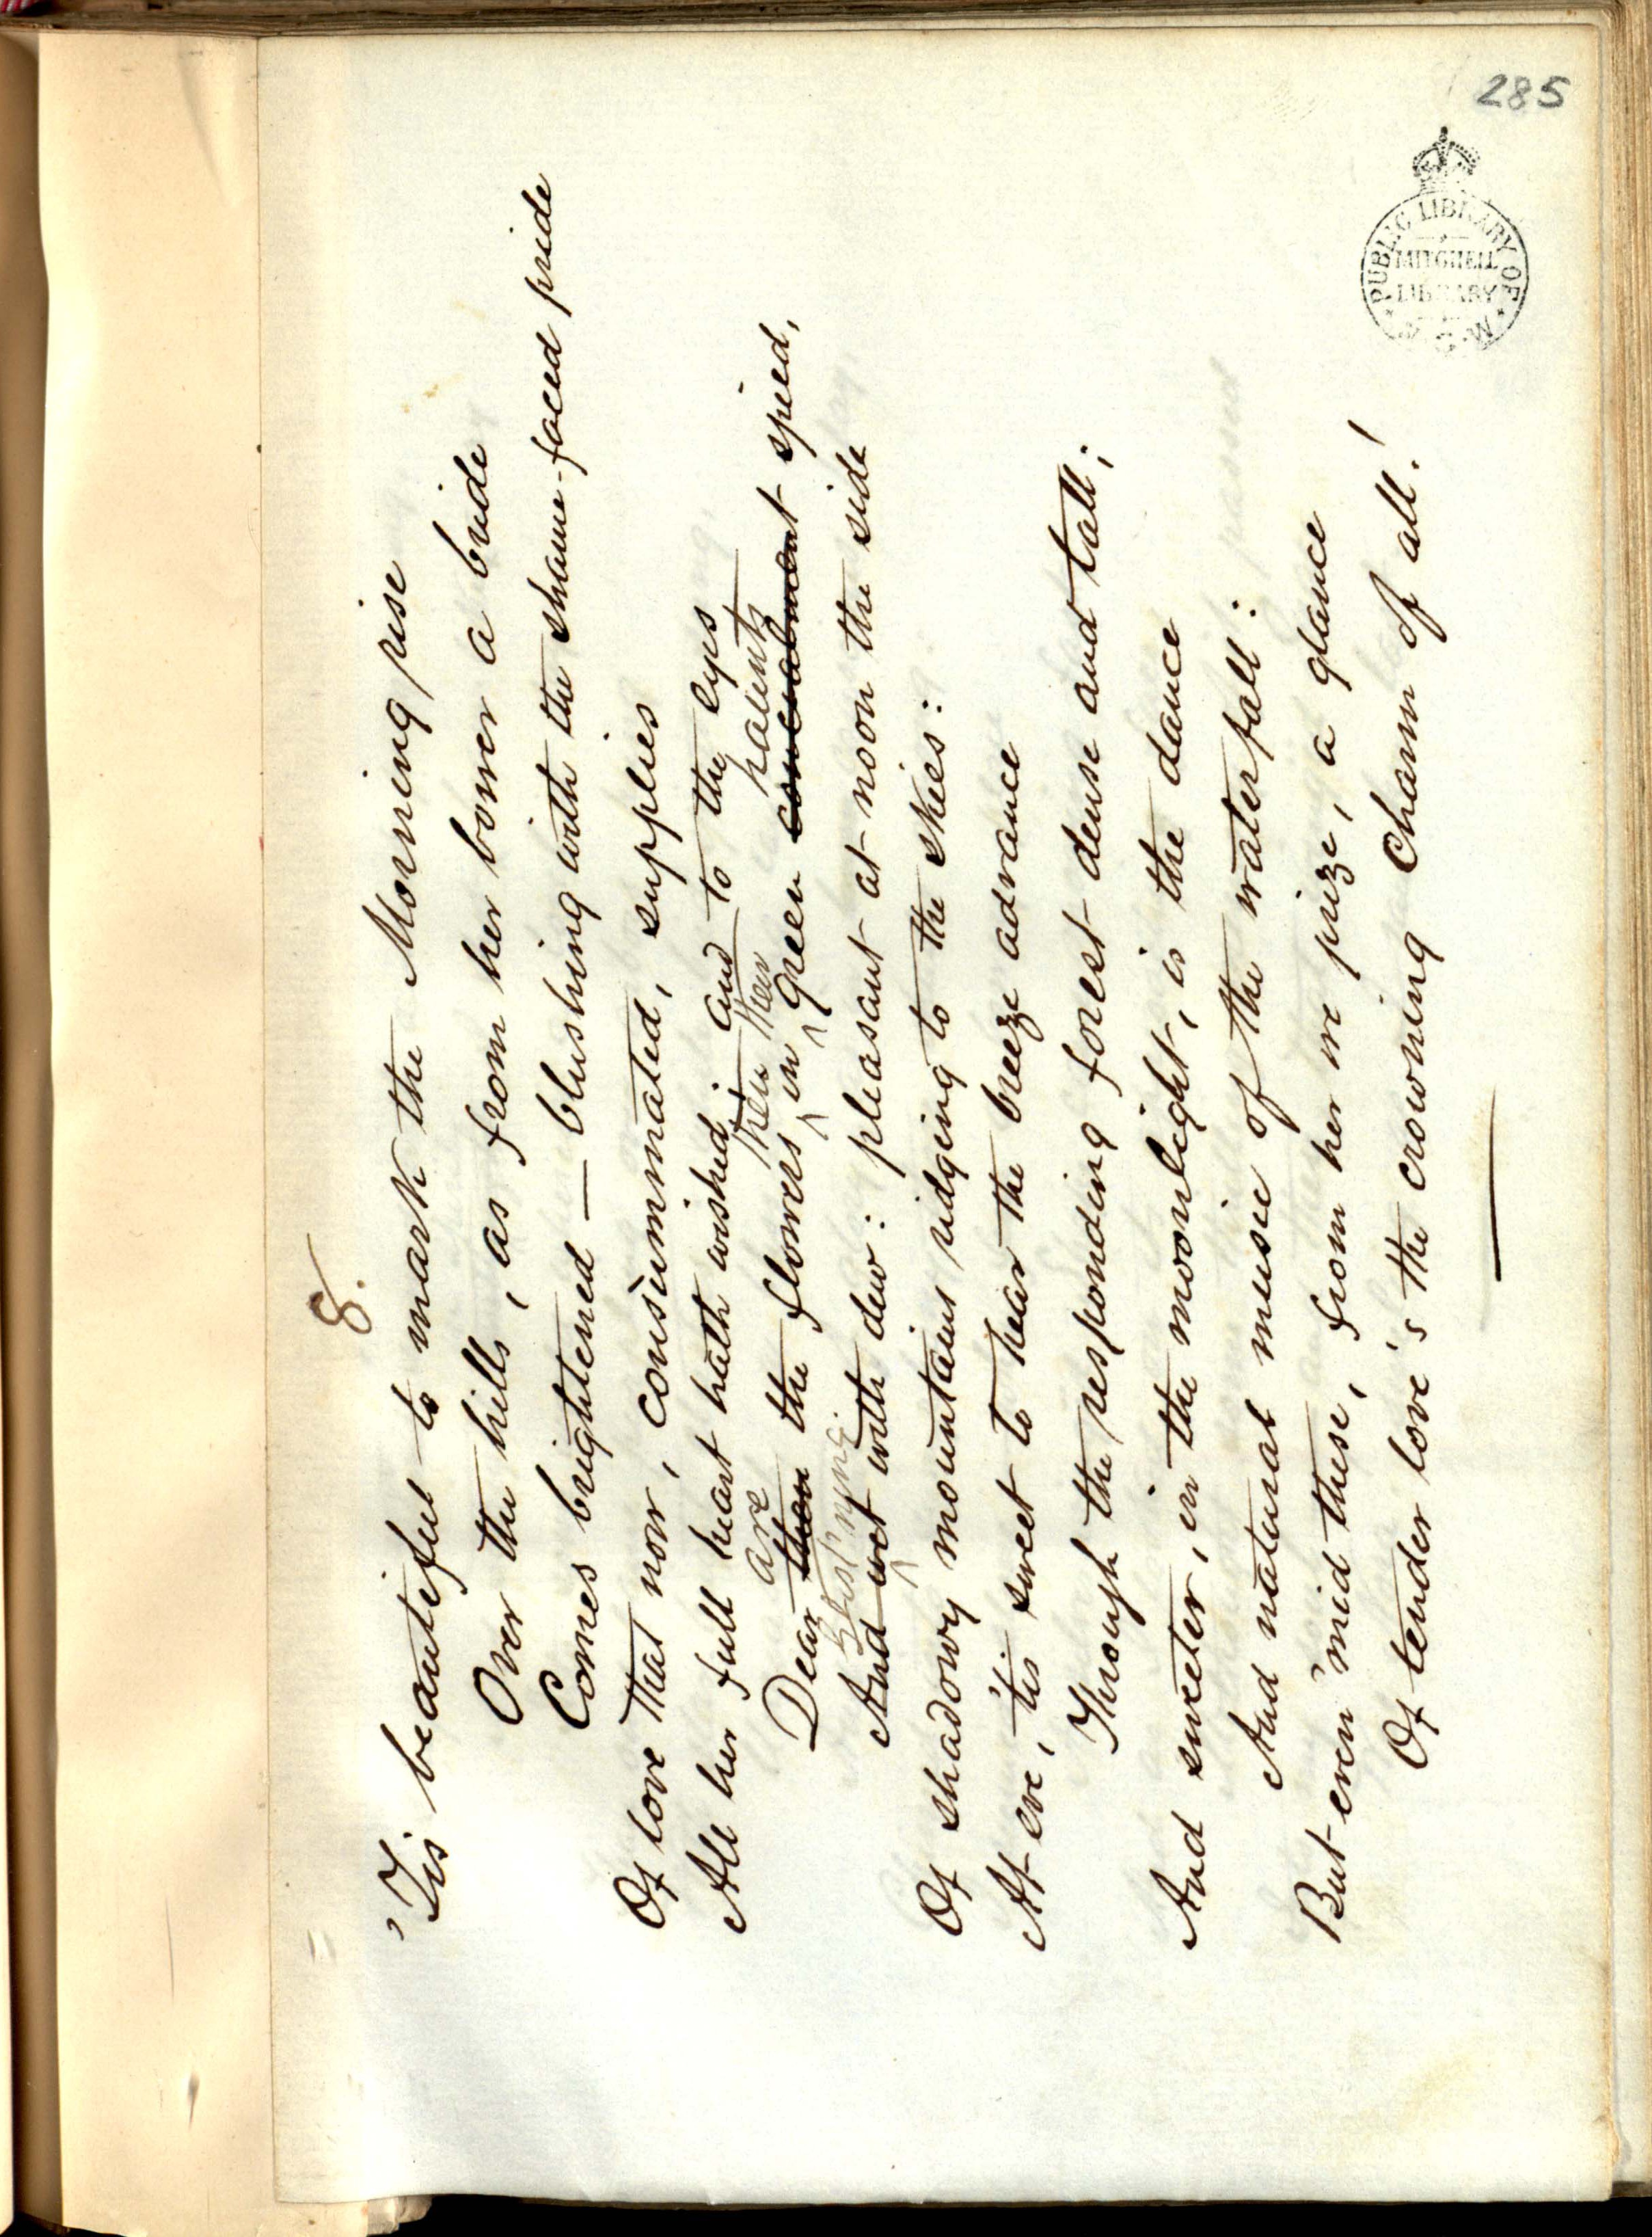 285
8.
'Tis beautiful to mark the Morning rise
Over the hills, as from her bower a bride
Comes brightened — blushing with the shame-faced pride
Of love that now, consummated, supplies
All her full heart hath wished; and to the eyes
are then their haunts
Dear then the flowers in green concealment spied,
glist'ning
And wet with dew: pleasant at noon the side
Of shadowy mountains ridging to the skies:
At eve, 'tis sweet to hear the breeze advance
Through the responding forest dense and tall;
And sweeter, in the moonlight, is the dance
And natural music of the waterfall:
But even 'mid these, from her we prize, a glance
Of tender love's the crowning charm of all!
PUBLIC LIBRARY OF N.S.W.
MITCHELL
LIBRARY